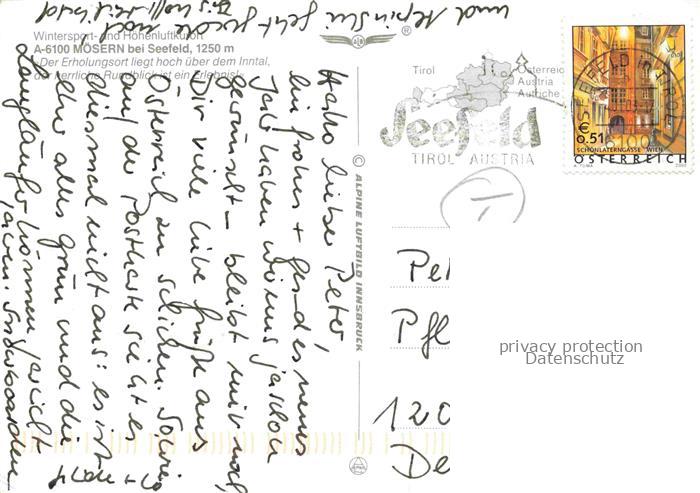 Wintersport- und Höhenluftkurort
A-6100 MÖSERN bei Seefeld, 1250 m
»Der Erholungsort liegt hoch über dem Inntal,
der herrliche Rundblick ist ein Erlebnis!«
Hallo lieber Peter,
ein frohes + gesundes neues
Jahr haben wir uns ja schon
gewünscht – bleibt mir noch
Dir viele liebe Grüße aus
Österreich zu schicken. So
auf der Postkarte sieht es
diesmal nicht aus: es ist
eher alles grün und die
Langläufer können nicht
und Alpinski geht gerade noch
® 
© ALPINE LUFTBILD INNSBRUCK
Tirol
Österreich
Austria
Autriche
Seefeld
TIROL AUSTRIA
SEEFELD IN TIROL
6100
€ 0.51
SCHÖNLATERNGASSE WIEN
ÖSTERREICH
Pe
Pfl
120
De
privacy protection
Datenschutz